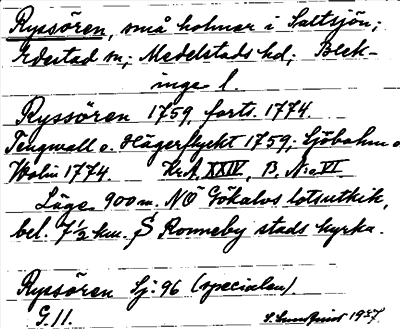 Ryssören, små holmar i Saltsjön;
Edestad sn; Medelstads hd; Blek-
inge l.
Ryssören 1759, forts. 1774.
Tengwall o. Hägerflycht 1759; Sjöbohm o
Wolin 1774. Kr.A. XXIV, B, N:o VI.
Läge 900 m. NÖ Gökalvs lotsutkik,
bel. 7½ km. S Ronneby stads kyrka.
Ryssören Sj: 96 (specialen).
G. 11. S. Lundquist 1937.